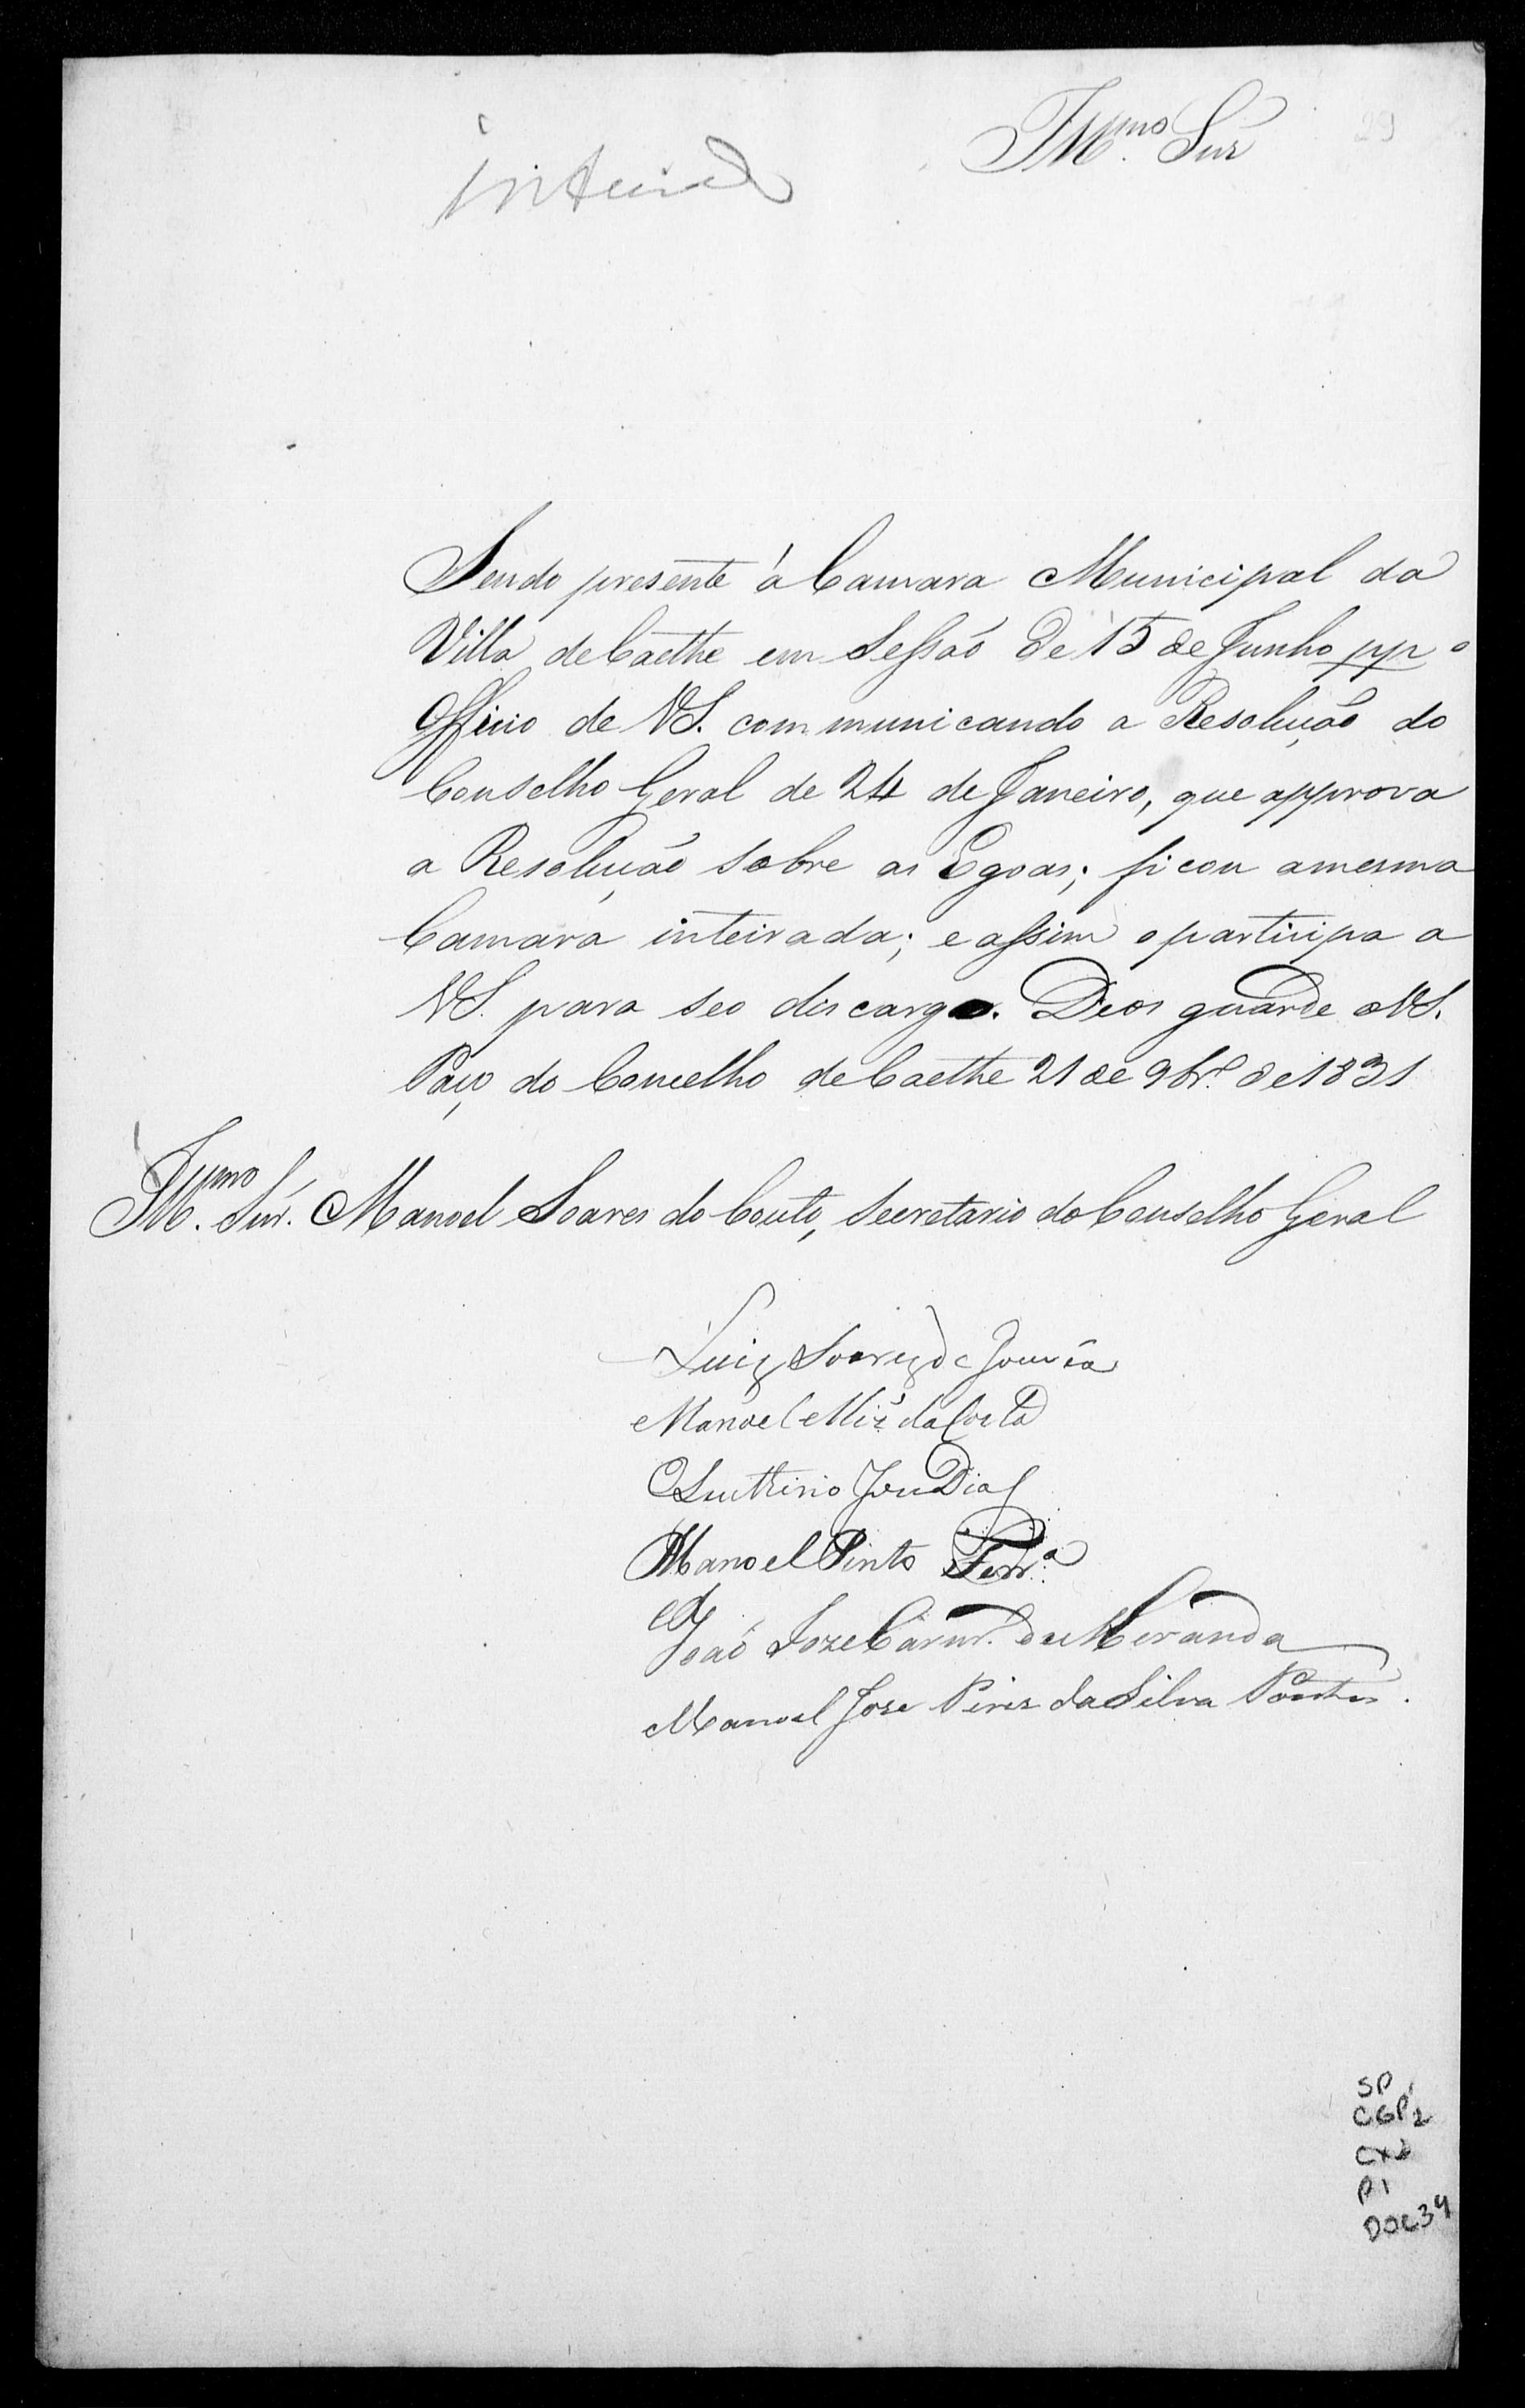 29
Illmo. Snr
inteirado
Sendo presente á Camara Municipal da
Villa de Caethe em Sessão de 15 de Junho pp o
Officio de VS. communicando a Resolução do
Conselho Geral de 24 de Janeiro, que approva
a Resolução sobre as Egoas; ficou a mesma
Camara inteirada; e assim o participa a
VS. para seo descargo. Deos guarde a VS.
Paço do Concelho de Caethe 21 de 9br.o de 1831
Illmo. Snr. Manoel Soares do Couto, Secretario do Conselho Geral
Luiz Soares de Gouvêa
Manoel Miz da Costa
Eleutherio Jose Dias
Manoel Pinto Ferr.a
João Joze Carnr.o de Miranda
Manoel Jose Pires da Silva Pontes.
SP
CGP2
P1
DOC34